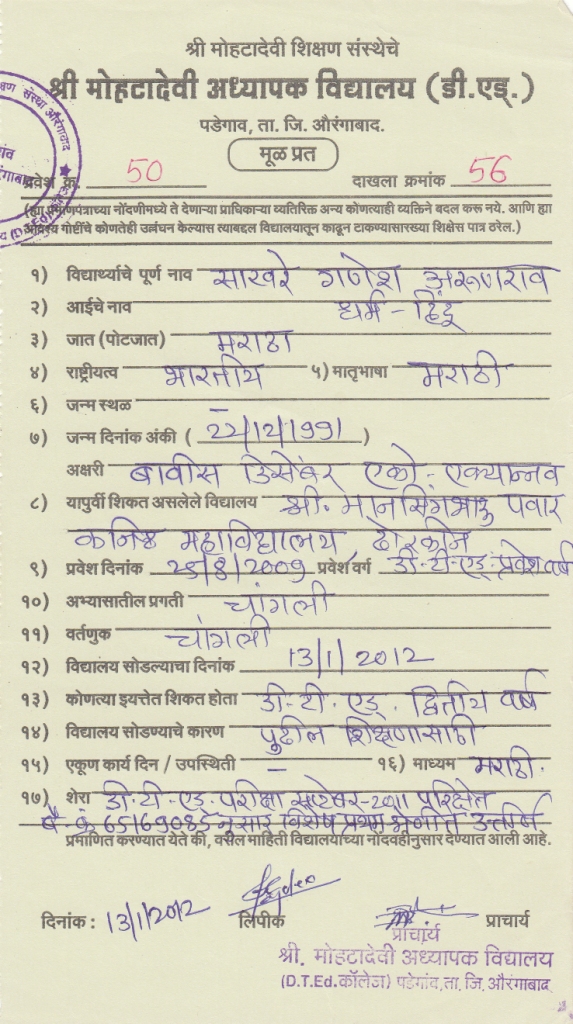 श्री मोहटादेवी शिक्षण संस्थेचे
श्री मोहटादेवी अध्यापक विद्यालय (डी.एड्.)
पडेगाव, ता. जि. औरंगाबाद.
मूळ प्रत
प्रवेश क्र. 50 दाखला क्रमांक 56
(ह्या प्रमाणपत्राच्या नोंदणीमध्ये ते देणाऱ्या प्राधिकाऱ्या व्यतिरिक्त अन्य कोणत्याही व्यक्तिने बदल करू नये. आणि ह्या
आवश्य गोष्टींचे कोणतेही उल्लंघन केल्यास त्याबद्दल विद्यालयातून काढून टाकण्यासारख्या शिक्षेस पात्र ठरेल.)
१) विद्यार्थ्याचे पूर्ण नाव साखरे गणेश अरूणराव
२) आईचे नाव धर्म - हिंदू
३) जात (पोटजात) मराठा
४) राष्ट्रीयत्व भारतीय ५) मातृभाषा मराठी
६) जन्म स्थळ –
७) जन्म दिनांक अंकी ( 22/12/1991 )
अक्षरी बावीस डिसेंबर एको. एक्यान्नव
८) यापुर्वी शिकत असलेले विद्यालय श्री. मानसिंगभाऊ पवार
कनिष्ठ महाविद्यालय, ढोरकीन
९) प्रवेश दिनांक 25/8/2009 प्रवेश वर्ग डी.टी.एड्. प्रवेश वर्ष
१०) अभ्यासातील प्रगती चांगली
११) वर्तणुक चांगली
१२) विद्यालय सोडल्याचा दिनांक 13/1/2012
१३) कोणत्या इयत्तेत शिकत होता डी.टी.एड्. द्वितीय वर्ष
१४) विद्यालय सोडण्याचे कारण पुढील शिक्षणासाठी
१५) एकूण कार्य दिन / उपस्थिती – १६) माध्यम मराठी.
१७) शेरा डी.टी.एड्. परीक्षा सप्टेंबर-2011 परिक्षेत
बै.क्रं 65169085 नुसार विशेष प्रथम श्रेणीत उत्तीर्ण
प्रमाणित करण्यात येते की, वरील माहिती विद्यालयाच्या नोंदवहीनुसार देण्यात आली आहे.
दिनांक : 13/1/2012 लिपीक प्राचार्य
प्राचार्य
श्री. मोहटादेवी अध्यापक विद्यालय
(D.T.Ed.कॉलेज) पडेगांव, ता. जि. औरंगाबाद